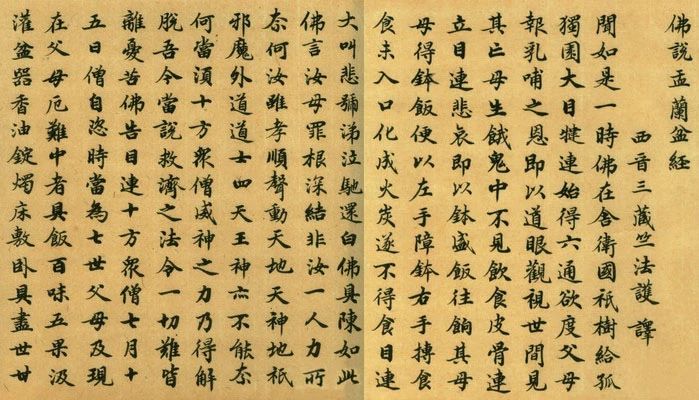 佛說盂蘭盆經
西晉三藏竺法護譯
聞如是一時佛在舍衛國祇樹給孤
獨園大目揵連始得六通欲度父母
報乳哺之恩即以道眼觀視世間見
其亡母生餓鬼中不見飲食皮骨連
立目連悲哀即以鉢盛飯往餉其母
母得鉢飯便以左手障鉢右手摶食
食未入口化成火炭遂不得食目連
大叫悲號涕泣馳還白佛具陳如此
佛言汝母罪根深結非汝一人力所
奈何汝雖孝順聲動天地天神地祇
邪魔外道道士四天王神亦不能奈
何當須十方眾僧威神之力乃得解
脫吾今當說救濟之法令一切難皆
離憂苦佛告目連十方眾僧七月十
五日僧自恣時當為七世父母及現
在父母厄難中者具飯百味五果汲
灌盆器香油錠燭床敷臥具盡世甘